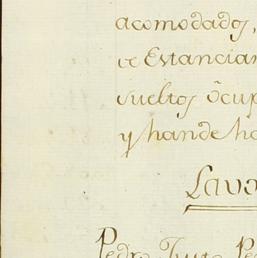 acomodados,
se Estancian
sueltos q̃ cup
y han de ha
Lava
Pedro Justo Pe